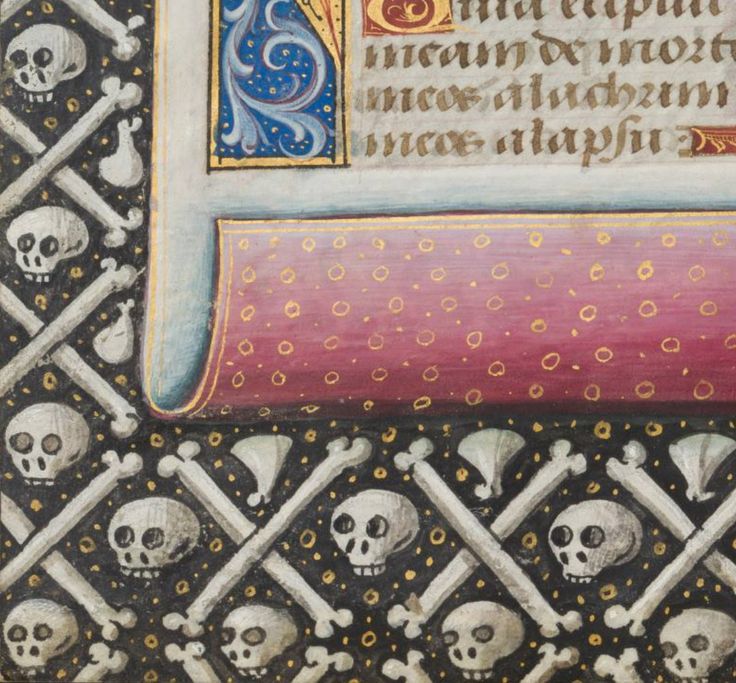 Quia eripuit
meam de morte
meos a lachrim
meos a lapsu